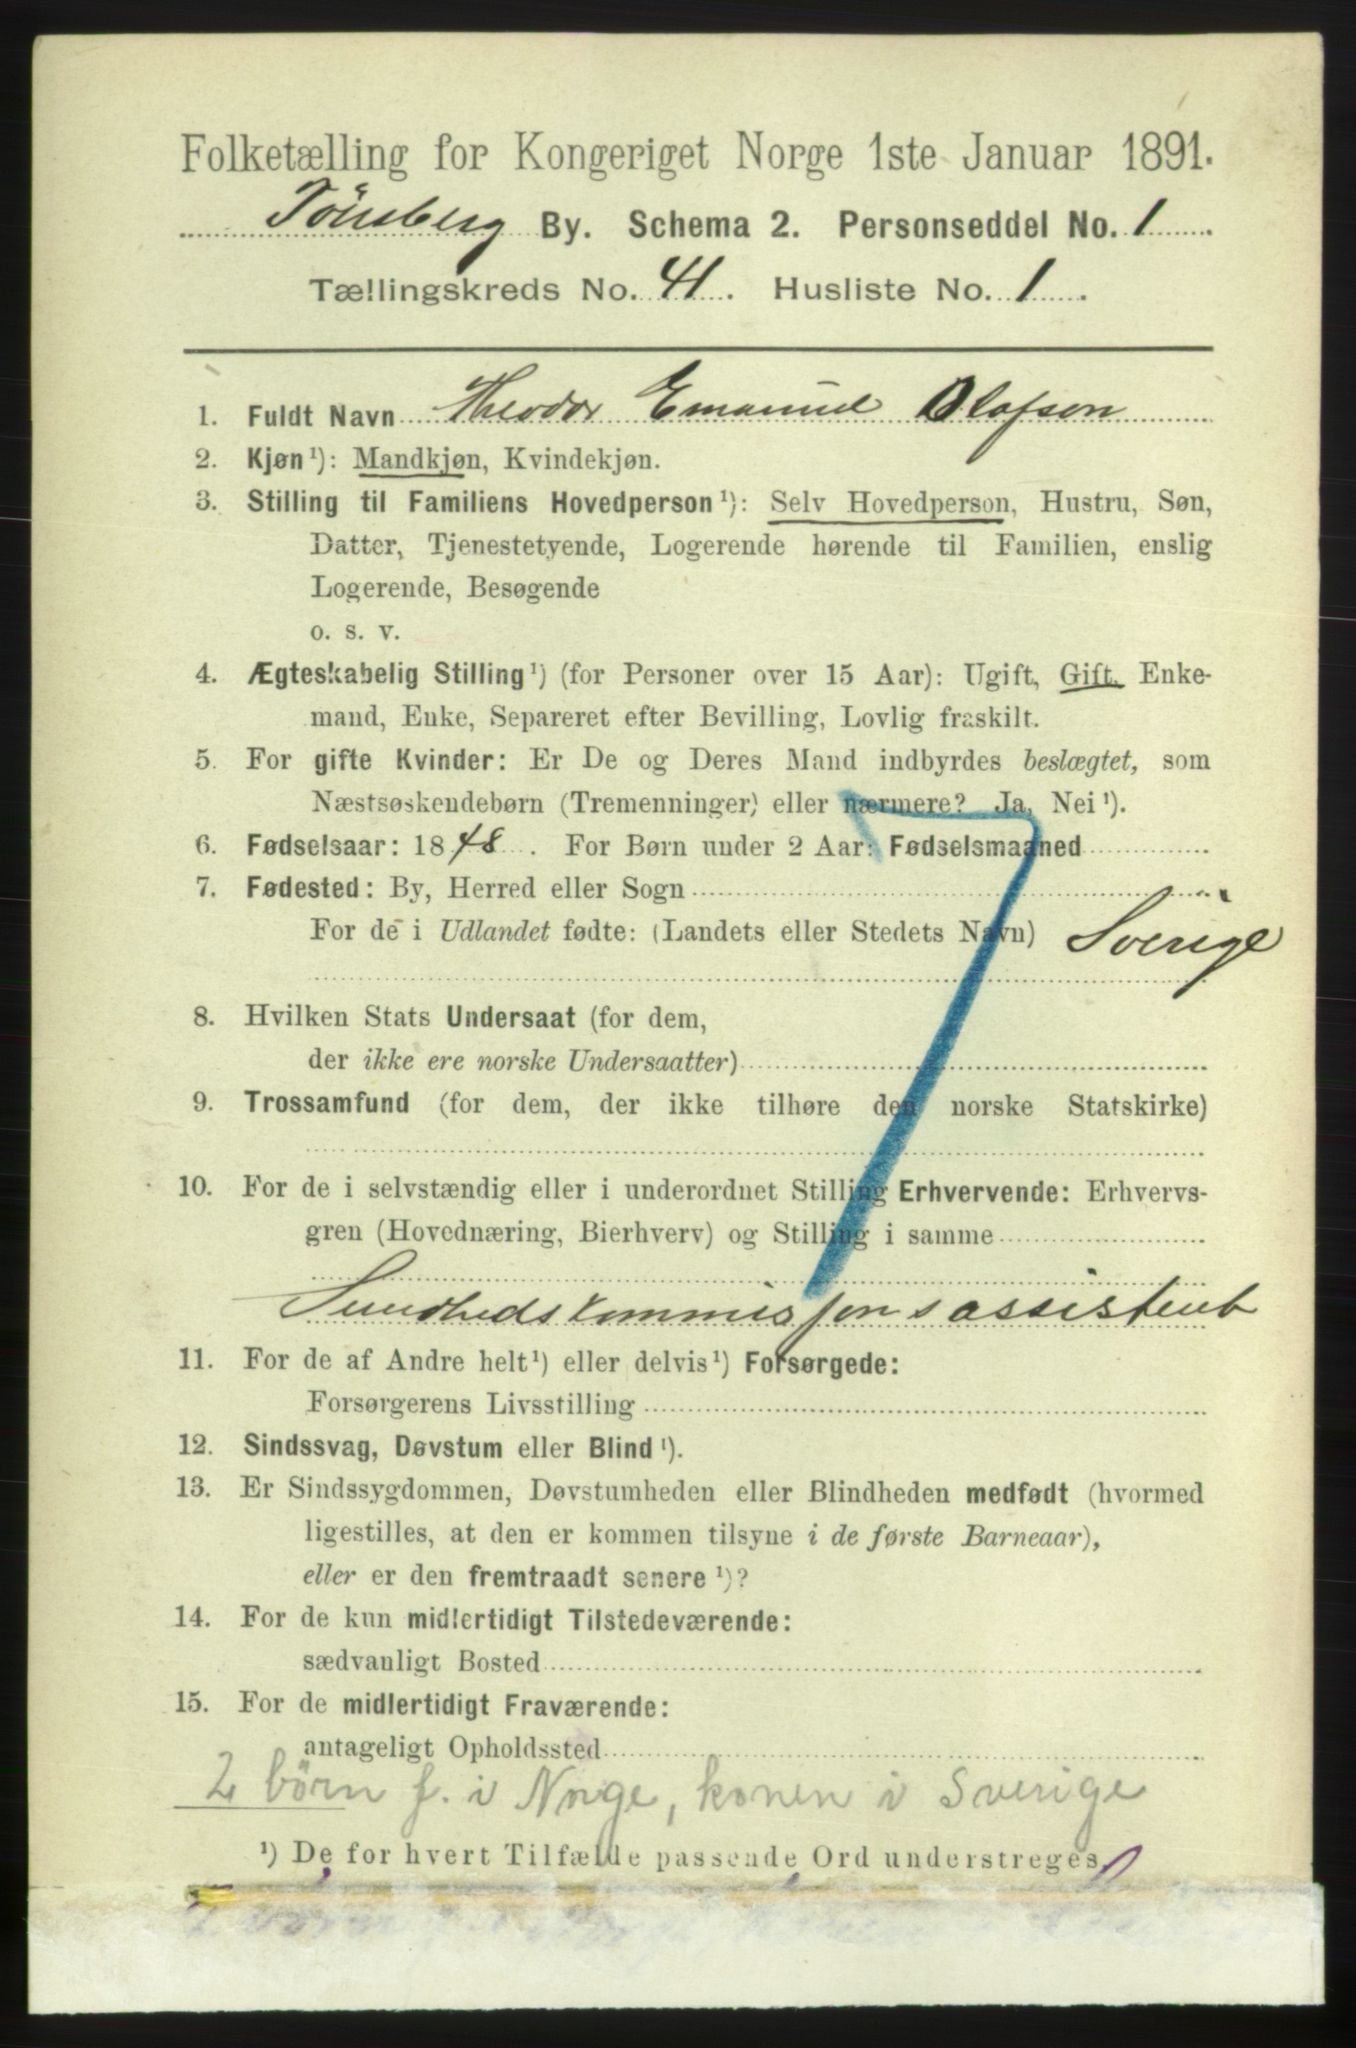 Folketælling for Kongeriget Norge 1ste Januar 1891.
Tönsberg By. Schema 2. Personseddel No. 1
Tællingskreds No. 41. Husliste No. 1.
1. Fuldt Navn Theodor Emanuel Olofson
2. Kjøn¹): Mandkjøn, Kvindekjøn.
3. Stilling til Familiens Hovedperson¹): Selv Hovedperson, Hustru, Søn,
Datter, Tjenestetyende, Logerende hørende til Familien, enslig
Logerende, Besøgende
o. s. v.
4. Ægteskabelig Stilling¹) (for Personer over 15 Aar): Ugift, Gift, Enke-
mand, Enke, Separeret efter Bevilling, Lovlig fraskilt.
5. For gifte Kvinder: Er De og Deres Mand indbyrdes beslægtet, som
Næstsøskendebørn (Tremenninger) eller nærmere? Ja, Nei¹).
6. Fødselsaar: 1848. For Børn under 2 Aar: Fødselsmaaned
7. Fødested: By, Herred eller Sogn
For de i Udlandet fødte: (Landets eller Stedets Navn) Sverige
8. Hvilken Stats Undersaat (for dem,
der ikke ere norske Undersaatter)
9. Trossamfund (for dem, der ikke tilhøre den norske Statskirke)
10. For de i selvstændig eller i underordnet Stilling Erhvervende: Erhvervs-
gren (Hovednæring, Bierhverv) og Stilling i samme
Sundhedskommisjonsassistent
11. For de af Andre helt¹) eller delvis¹) Forsørgede:
Forsørgerens Livsstilling
12. Sindssvag, Døvstum eller Blind¹).
13. Er Sindssygdommen, Døvstumheden eller Blindheden medfødt (hvormed
ligestilles, at den er kommen tilsyne i de første Barneaar),
eller er den fremtraadt senere¹)?
14. For de kun midlertidigt Tilstedeværende:
sædvanligt Bosted
15. For de midlertidigt Fraværende:
antageligt Opholdssted
2 börn f. i Norge, konen i Sverige
¹) De for hvert Tilfælde passende Ord understreges.